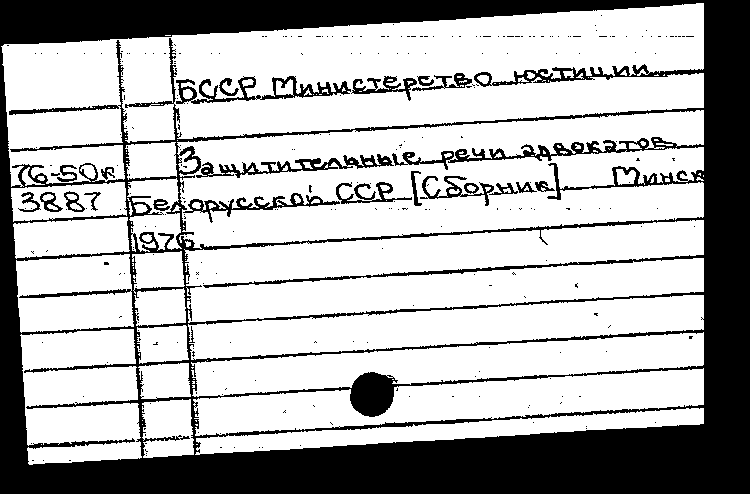 БССР Министерство юстиции
76-50к Защитительные речи адвокатов
3887 Белорусской ССР [Сборник] Минск
1976.